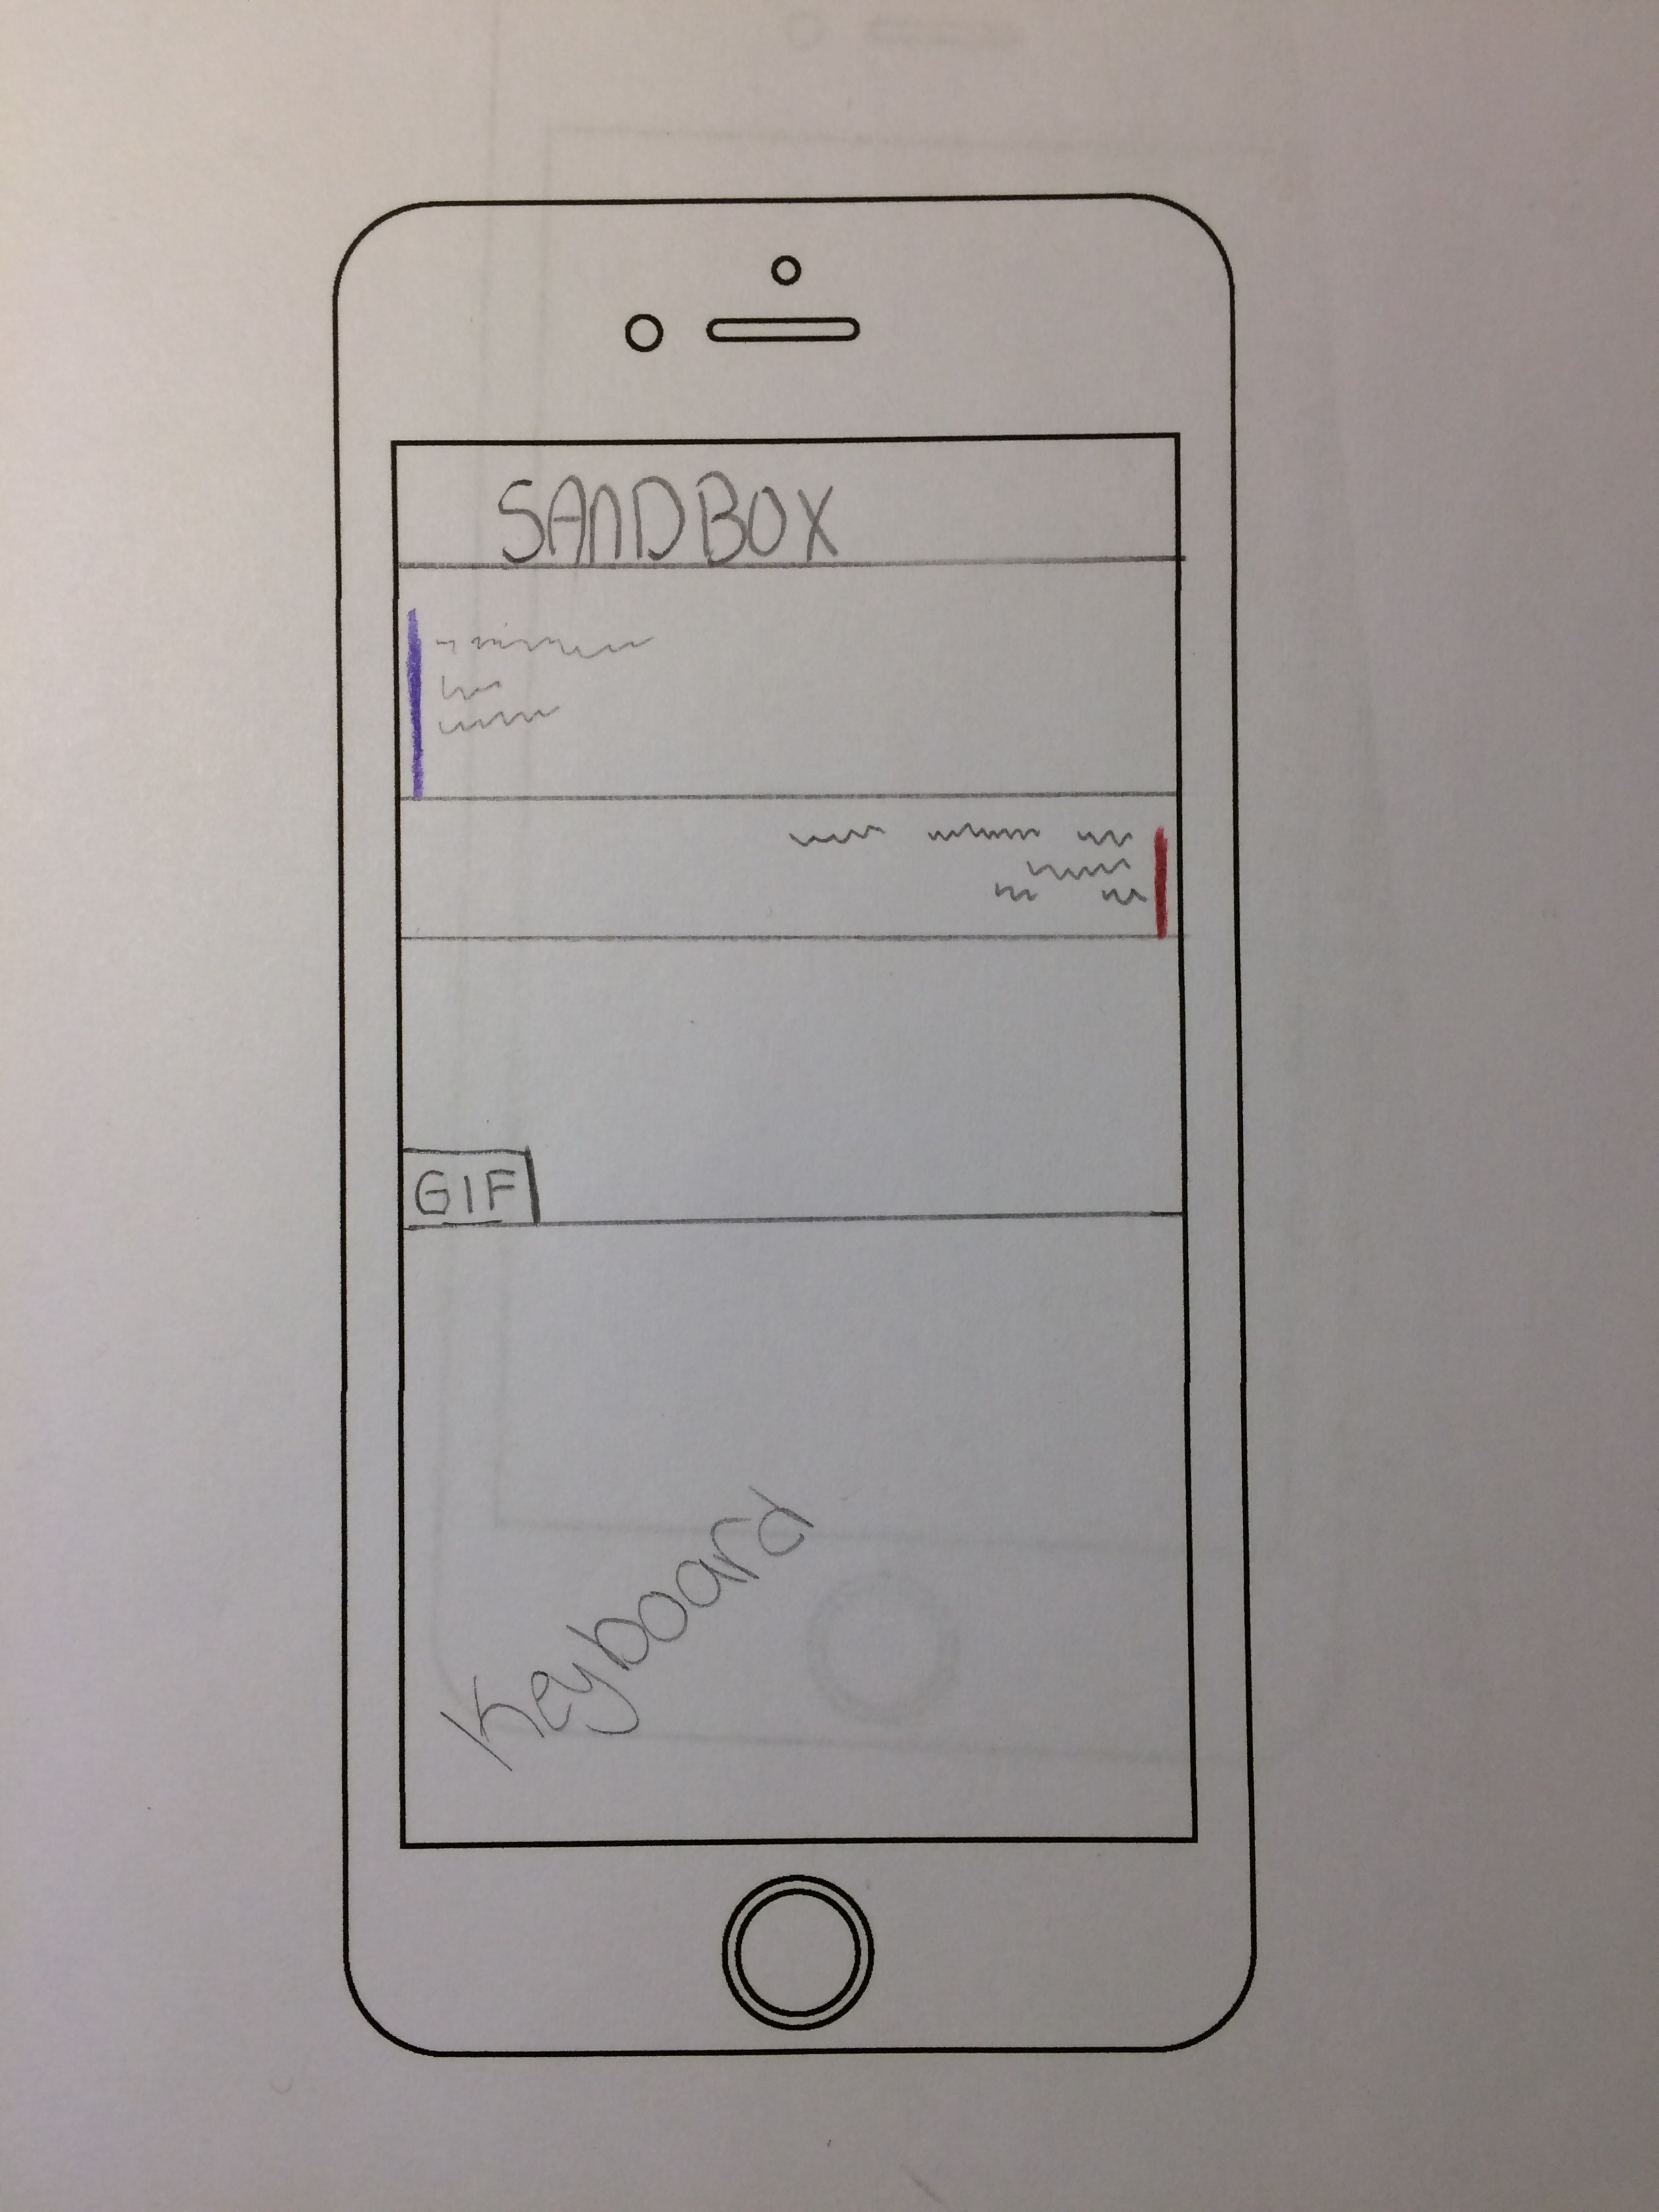 SANDBOX
GIF
Keyboard